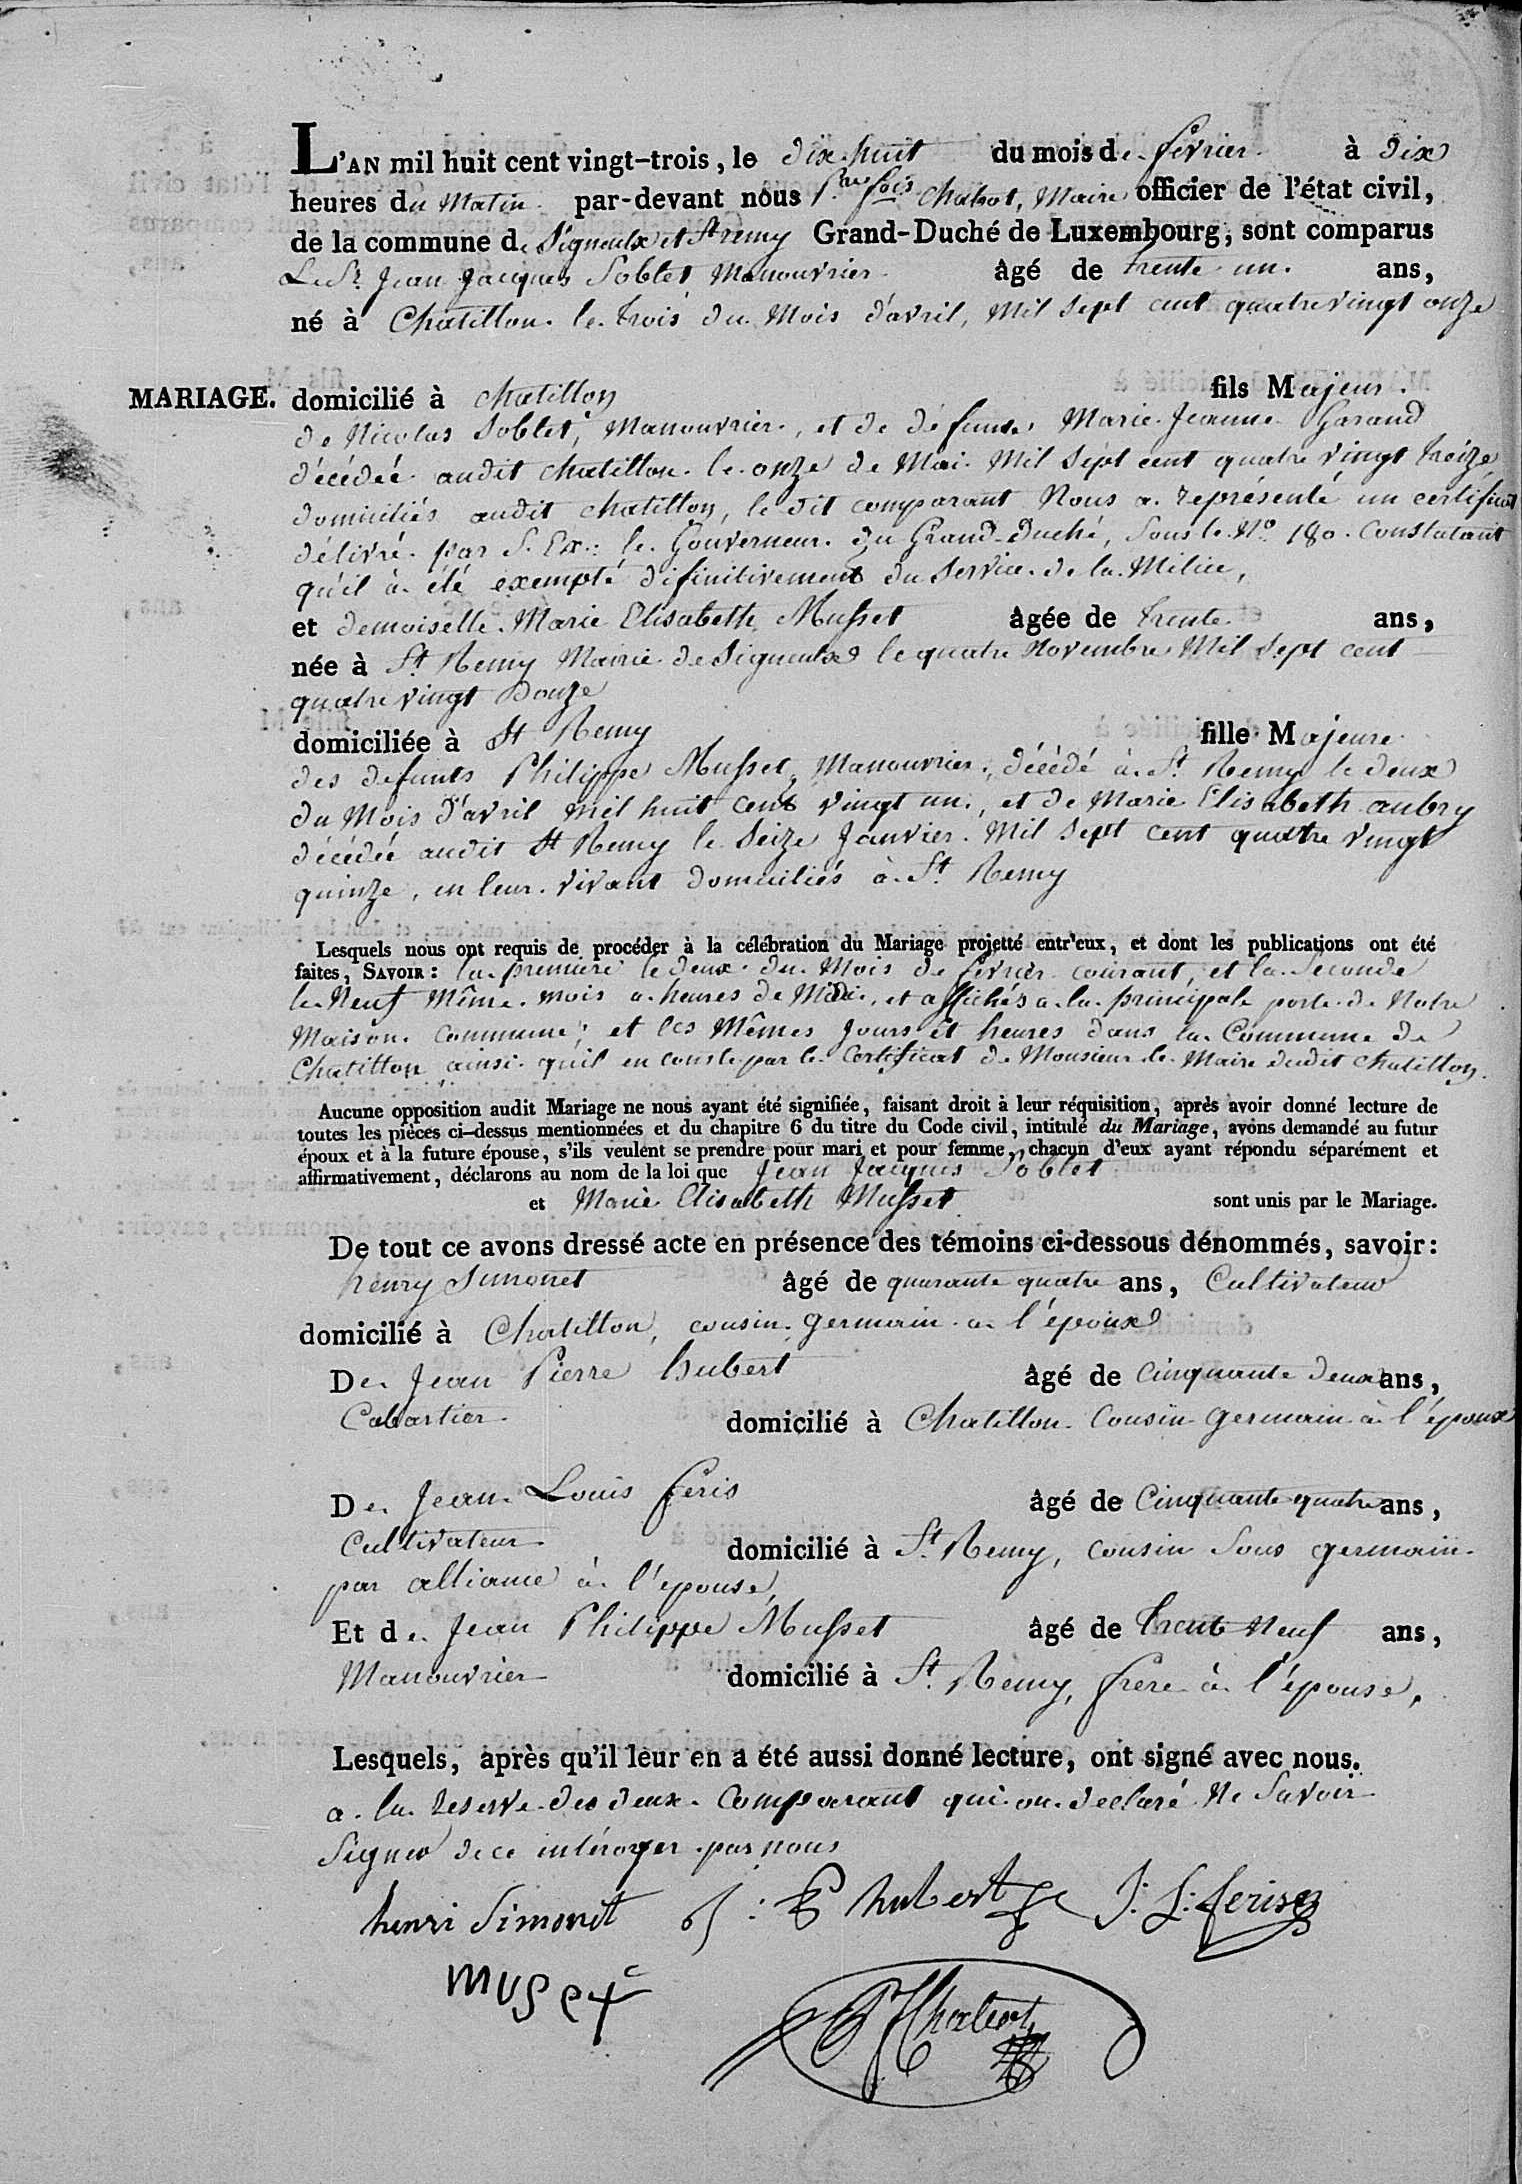 L'AN mil huit cent vingt-trois, le dix huit du mois de février à dix
heures du Matin par-devant nous P.re fois Chabot, Maire officier de l'état civil,
de la commune de Signeulx et St remy Grand-Duché de Luxembourg, sont comparus
Le Sr. Jean Jacques Soblet Manouvrier âgé de trente un ans,
né à Chatillon le trois du Mois d'avril, Mil sept cent quatre vingt onze
MARIAGE. domicilié à chatillon fils Majeur
de Nicolas Soblet, Manouvrier, et de défunte Marie Jeanne Garand
décédée audit chatillon le onze de Mai Mil sept cent quatre vingt treize
domiciliés audit chatillon, le dit comparant Nous a représenté un certificat
délivré par S. Ex.: le Gouverneur du Grand-Duché, sous le No 180. Constatant
qu'il à été exempté difinitivement du Service de la Milice,
et demoiselle Marie Elisabeth Musset âgée de trente ans,
née à St Remy Mairie de Signeulx le quatre Novembre Mil Sept cent
quatre vingt Douze
domiciliée à St Remy fille Majeure
des defunts Philippe Musset, Manouvrier, décédé à St Remy le deux
du Mois d'avril mil huit cent vingt un, et de Marie Elisabeth aubry
décédée audit St Remy le Seize Janvier Mil Sept cent quatre vingt
quinze, en leur vivant domiciliés à St Remy
Lesquels nous ont requis de procéder à la célébration du Mariage projetté entr'eux, et dont les publications ont été
faites, SAVOIR: la première le deux du Mois de février courant, et la Seconde
le Neuf même mois a heures de Midi, et affichés a la principale porte de Notre
Maison Commune; et les Mêmes Jours et heures dans la Commune de
Chatillon ainsi qu'il en conste par le Certificat de Monsieur le Maire dudit chatillon.
Aucune opposition audit Mariage ne nous ayant été signifiée, faisant droit à leur réquisition, après avoir donné lecture de
toutes les pièces ci-dessus mentionnées et du chapitre 6 du titre du Code civil, intitulé du Mariage, avons demandé au futur
époux et à la future épouse, s'ils veulent se prendre pour mari et pour femme, chacun d'eux ayant répondu séparément et
affirmativement, déclarons au nom de la loi que Jean Jacques Soblet
et Marie Elisabeth Musset sont unis par le Mariage.
De tout ce avons dressé acte en présence des témoins ci-dessous dénommés, savoir:
henry Simonet âgé de quarante quatre ans, Cultivateur
domicilié à Chatillon, cousin germain a l'époux
De Jean Pierre hubert âgé de Cinquante deux ans,
Cabartier domicilié à Chatillon Cousin germain à l'époux
De Jean Louis feris âgé de Cinquante quatre ans,
Cultivateur domicilié à St Remy, cousin sous germain
par alliance à l'epouse,
Et de Jean Philippe Musset âgé de trente Neuf ans,
Manouvrier domicilié à St Remy, frère à l'épouse,
Lesquels, après qu'il leur en a été aussi donné lecture, ont signé avec nous.
a la reserve des deux Comparant qui on declaré Ne Savoir
Signer de ce intéroger par nous
henri Simonet J: P hubert J: L: feris
muset
PF Chabot